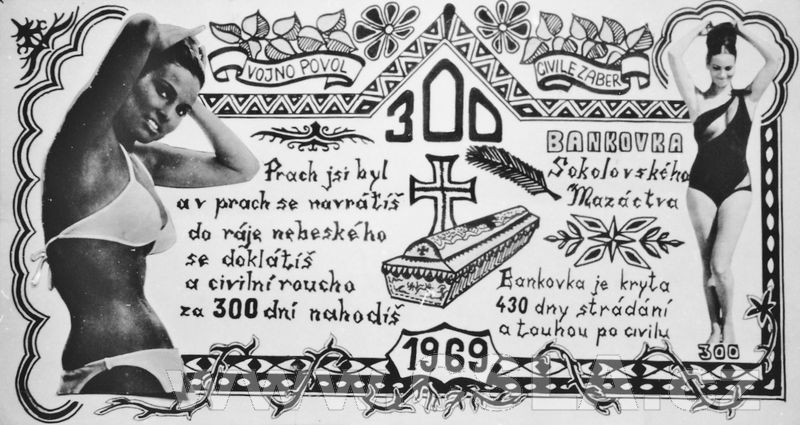 VOJNO POVOL
CIVILE ZABER
300
BANKOVKA
Sokolovského
Mazáctva
Prach jsi byl
a v prach se navrátíš
do ráje nebeského
se doklátíš
a civilní roucho
za 300 dní nahodíš
Bankovka je kryta
430 dny strádání
a touhou po civilu
1969
300